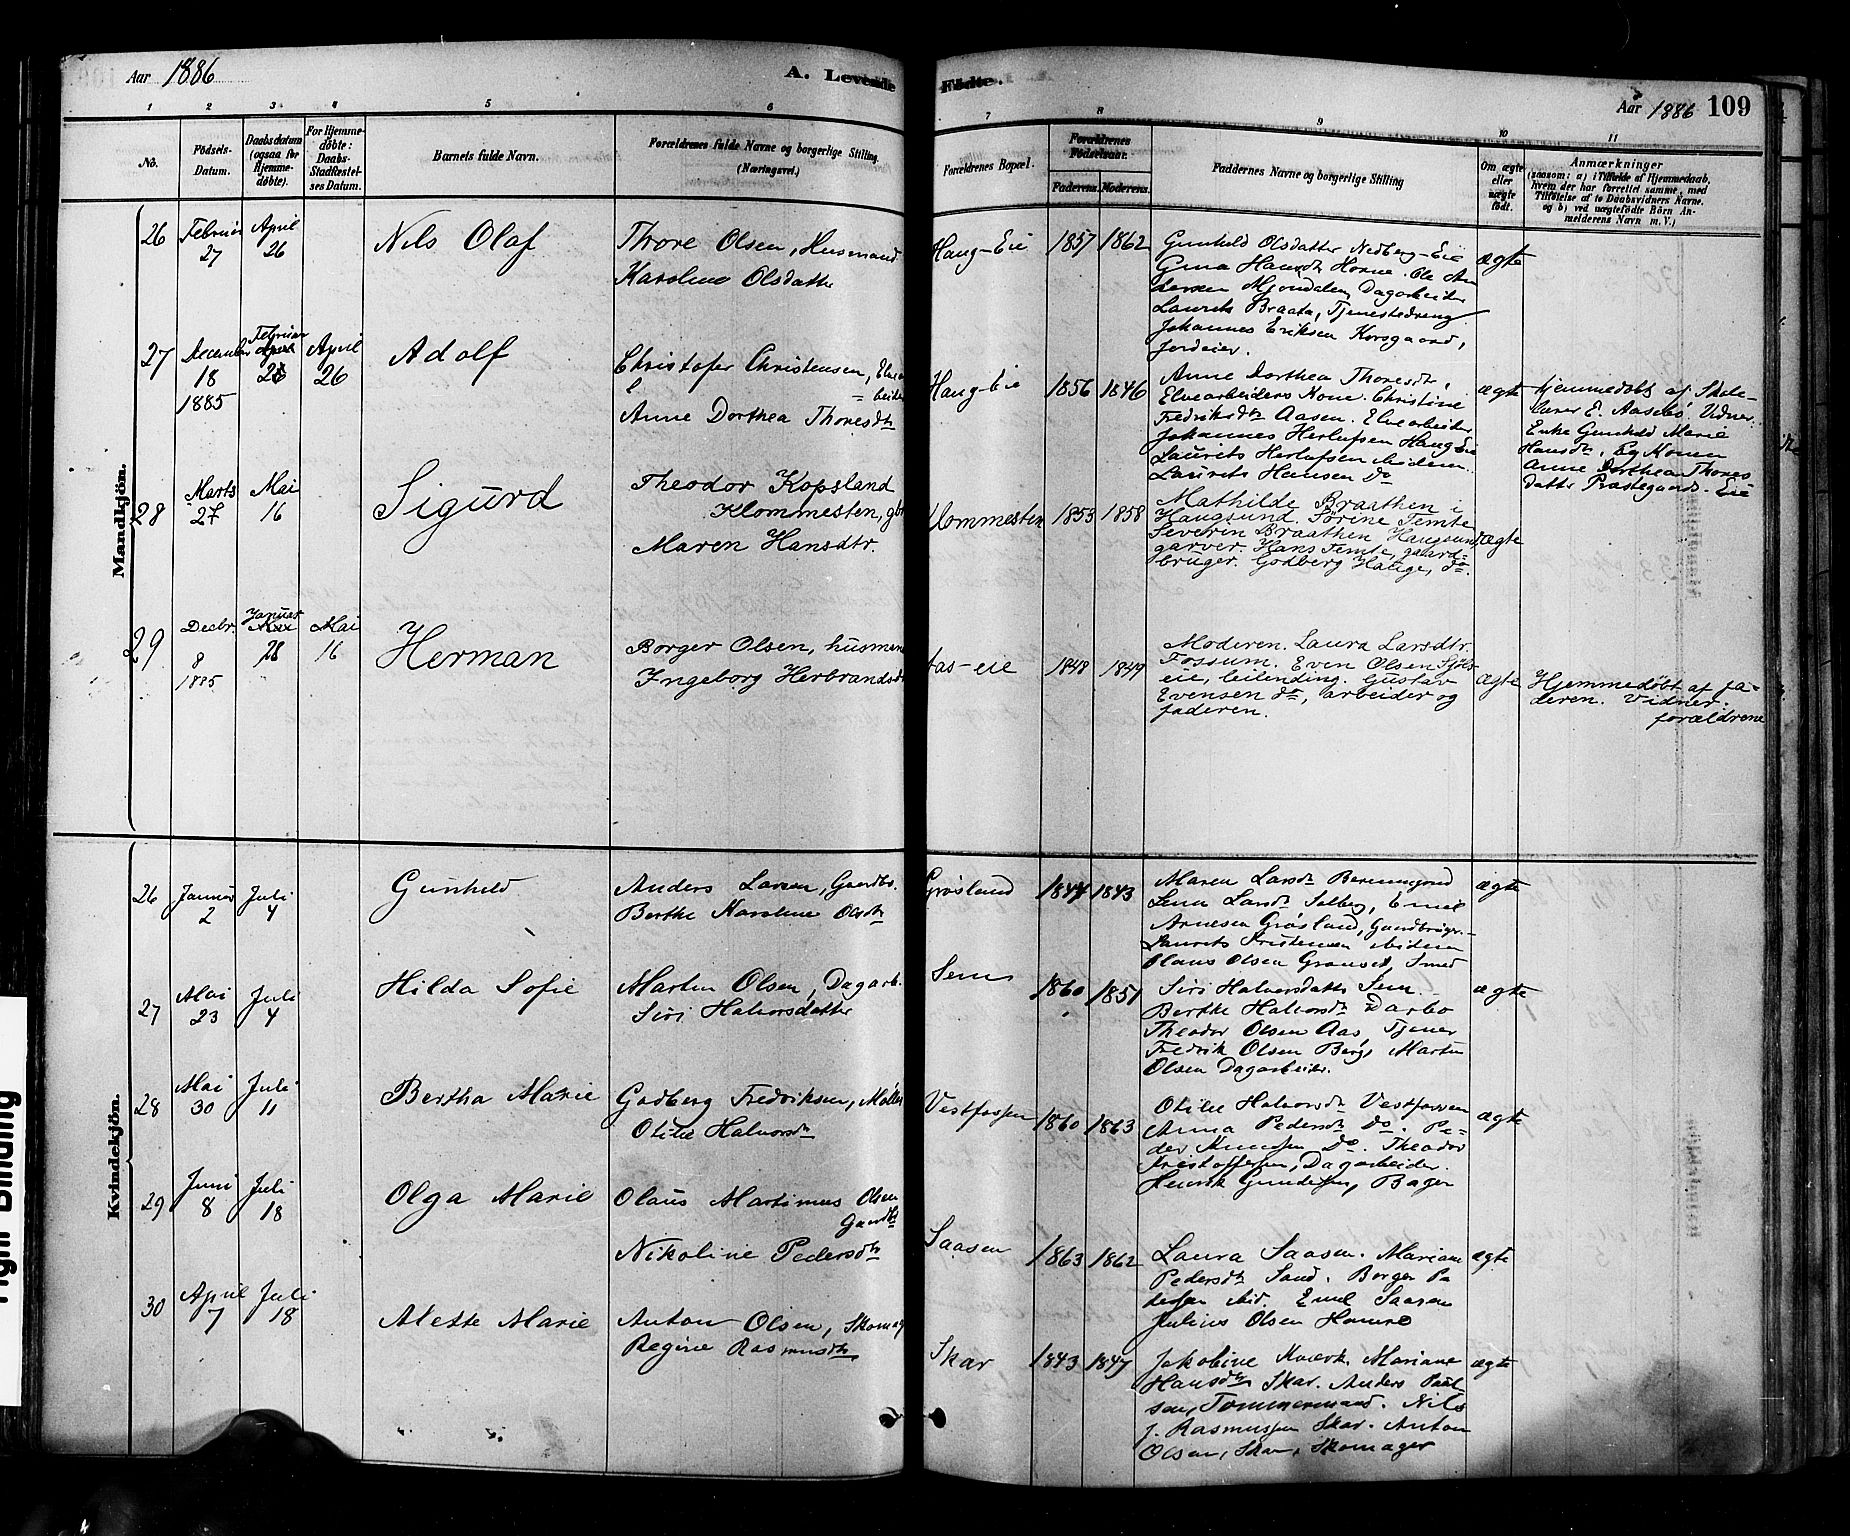 Aar 1886
A. Levende Fødte.
Aar 1886 109
1 2 3 4 5 6 7 8 9 10 11
No.
Fødsels-Datum.
Daabsdatum (ogsaa for Hjemmedøbte).
For Hjemmedøbte: Daabs-Stadfæstelses Datum.
Barnets fulde Navn.
Forældrenes fulde Navne og borgerlige Stilling. (Næringsvei.)
Forældrenes Bopæl.
Forældrenes Fødselsaar.
Faderens. Moderens.
Faddernes Navne og borgerlige Stilling
Om ægte eller uægte født.
Anmærkninger
(saasom: a) i Tilfælde af Hjemmedaab, hvem der har forrettet samme, med Tilføielse af to Daabsvidners Navne. og b) ved uægtefødte Børn Anmelderens Navn m. V.)
Mandkjön.
26 Februar 27 April 26 Nils Olaf
Thore Olsen, Husmand
Karoline Olsdatter
Haug-Eie 1857 1862
Gunhild Olsdatter Nedberg-Eie
Gina Hansdtr Horne. Ole An
dersen Mjøndalen, Dagarbeider
Laurits Braata, Tjenestedreng
Johannes Eriksen Korsgaard,
Jordeier.
ægte
27 December 18 1885 Februar 28 April 26 Adolf
Christofer Christensen, Elvearbeider
Anne Dorthea Thoresdtr
Haug-Eie 1856 1846
Anne Dorthea Thoresdtr,
Elvearbeiders Kone. Christine
Fredriksdtr Aasen. Elvearbeider
Johannes Herlufsen Haug Eie
Laurits Herlufsen ibidem.
Laurits Hansen Do
ægte
Hjemmedøbt af Skole-
lærer E. Aasebø. Vidner:
Enke Gunhild Marie
Hansdtr, og Konen
Anne Dorthea Thores
datter Præstegaards-Eie
28 Marts 27 Mai 16 Sigurd
Theodor Kopsland
Klommesten, gbr
Maren Hansdtr.
Klommesten 1853 1858
Mathilde Braathen i
Haugsund. Sørine Temte
Severin Braathen Haugsund,
garver. Hans Temte, gaard-
bruger. Godberg Hauge, do.
ægte
29 Decbr. 8 1885 Januar 28 Mai 16 Herman
Borger Olsen, husmand
Ingeborg Herbrandsdtr
Aas-eie 1848 1849
Moderen. Laura Larsdtr.
Fossum. Even Olsen
eie, leilending. Gustav
Evensen do, arbeider og
faderen.
ægte
Hjemmedøbt af fa-
deren. Vidner:
forældrene
Kvindekjön.
26 Januar 2 Juli 4 Gunhild
Anders Larsen, Gaardbr.
Berthe Karoline Olsdtr
Grøsland 1844 1843
Maren Larsdtr
Lena Larsdtr Solberg, Emil
Arnesen Grøsland, Gaardbruger.
Laurits Kristensen ibidem
Olaus Olsen, Smed
ægte
27 Mai 23 Juli 4 Hilda Sofie
Martin Olsen, Dagarb.
Siri Halvorsdatter
Sem 1860 1857
Siri Halvorsdatter Sem.
Berthe Halvorsdtr Darbo
Theodor Olsen Aas Tjener
Fredrik Olsen Berg, Martin
Olsen Dagarbeider.
ægte
28 Mai 30 Juli 11 Bertha Marie
Godberg Fredriksen, Møller
Otilie Halvorsdtr
Vestfossen 1860 1863
Otilie Halvorsdtr Vestfossen
Anna Pedersdtr Do. Pe-
der Knudsen Do. Theodor
Kristoffersen, Dagarbeider.
Henrik Gundersen, Bager
ægte
29 Juni 8 Juli 18 Olga Marie
Olaus Martinius Olsen
Gaardbr
Nikoline Pedersdtr
Saasen 1863 1862
Laura Saasen. Mariane
Pedersdtr Sand. Borger Pe
dersen ibid. Emil Saasen
Julius Olsen Hamre
ægte
30 April 7 Juli 18 Alette Marie
Anton Olsen, Skomag
Regine Rasmusdtr
Skar 1843 1847
Jakobine. Mariane
Hansdtr Skar. Anders Paul-
sen, Tømmermand. Nils
J. Rasmussen Skar. Anton
Olsen, Skar, Skomager
ægte